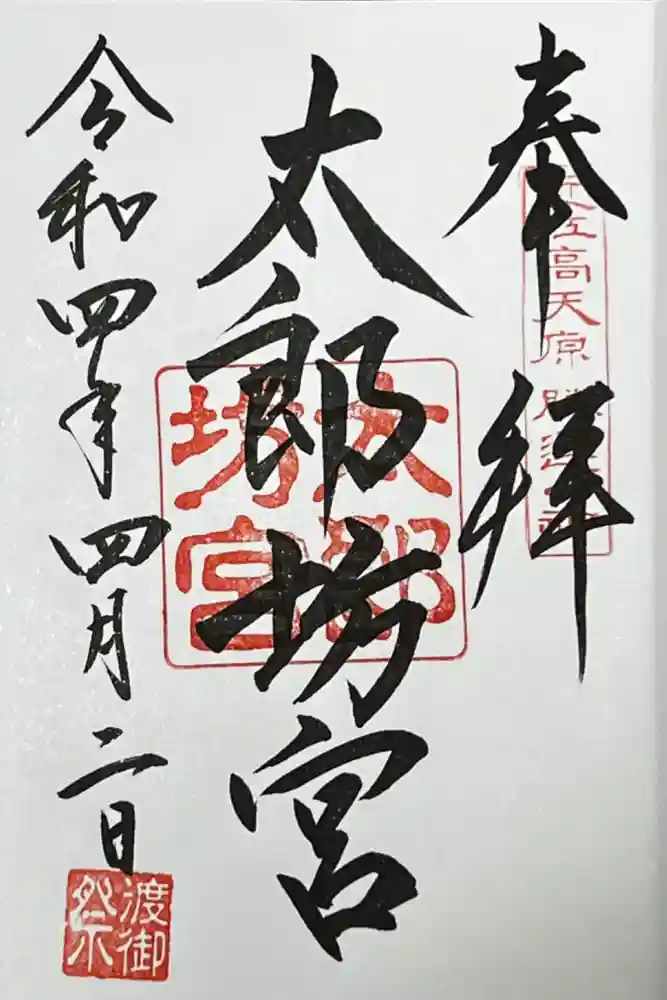 奉拝
近江高天原勝運之神
太郎坊宮
太郎坊宮
令和四年四月二日
渡御祭